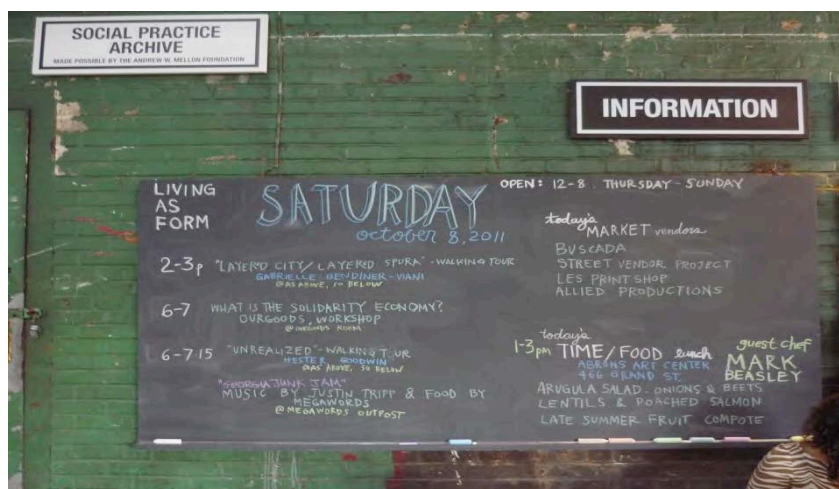 SOCIAL PRACTICE
ARCHIVE
MADE POSSIBLE BY THE ANDREW W. MELLON FOUNDATION
INFORMATION
LIVING
AS
FORM
SATURDAY
october 8, 2011
OPEN: 12-8. THURSDAY - SUNDAY
2-3p "LAYERED CITY/LAYERED SPURA" - WALKING TOUR
GABRIELLE BENDINER-VIANI
@AS ABOVE, SO BELOW
6-7 WHAT IS THE SOLIDARITY ECONOMY?
OURGOODS, WORKSHOP
6-7:15 "UNREALIZED" - WALKING TOUR
HESTER GOODWIN
@AS ABOVE, SO BELOW
"GEORGIA JUNK JAM"
MUSIC BY JUSTIN TRIPP & FOOD BY
MEGAWORDS
@ MEGAWORDS OUTPOST
today's
MARKET vendors
BUSCADA
STREET VENDOR PROJECT
LES PRINT SHOP
ALLIED PRODUCTIONS
today's
1-3pm TIME/FOOD lunch
ABRONS ART CENTER
466 GRAND ST.
guest chef
MARK
BEASLEY
ARUGULA SALAD - ONIONS & BEETS
LENTILS & POACHED SALMON
LATE SUMMER FRUIT COMPOTE